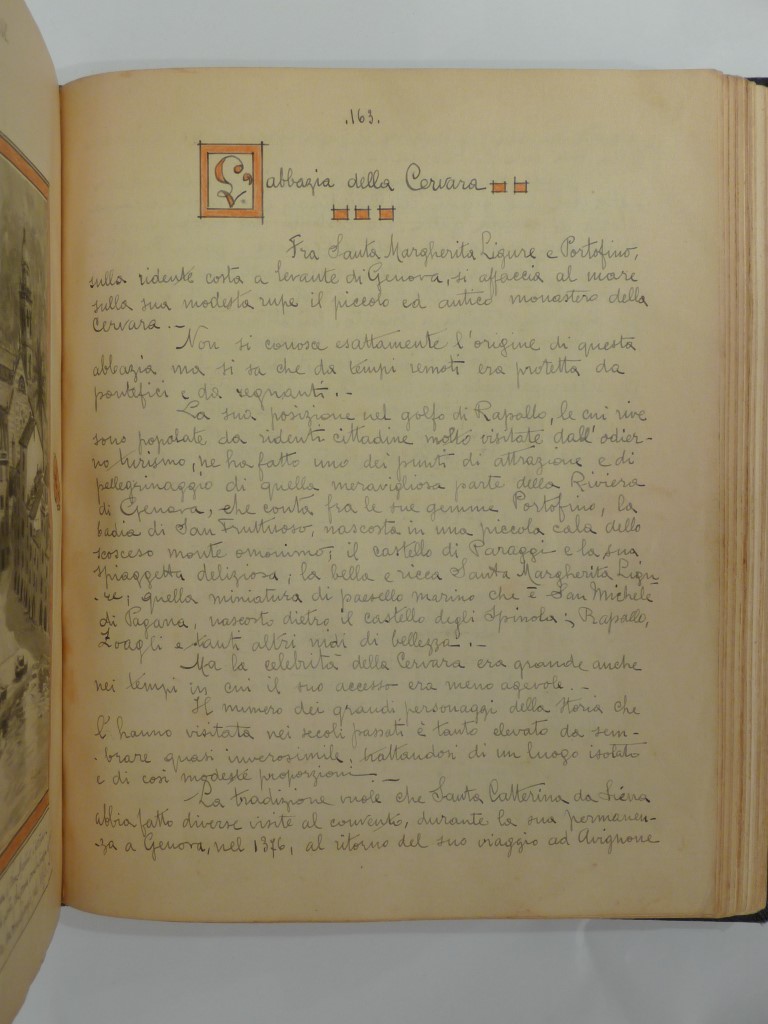 .163.
L'abbazia della Cervara
Fra Santa Margherita Ligure e Portofino,
sulla ridente costa a levante di Genova, si affaccia al mare
sulla sua modesta rupe il piccolo ed antico monastero della
Cervara.-
Non si conosce esattamente l'origine di questa
abbazia ma si sa che da tempi remoti era protetta da
pontefici e da regnanti.-
La sua posizione nel golfo di Rapallo, le cui rive
sono popolate da ridenti cittadine molto visitate dall'odier-
no turismo, ne ha fatto uno dei punti di attrazione e di
pellegrinaggio di quella meravigliosa parte della Riviera
di Genova, che conta fra le sue gemme Portofino, la
badia di San Fruttuoso, nascosta in una piccola cala dello
scosceso monte omonimo; il castello di Paraggi e la sua
spiaggetta deliziosa; la bella e ricca Santa Margherita Ligu-
re; quella miniatura di paesello marino che è San Michele
di Pagana, nascosto dietro il castello degli Spinola; Rapallo,
Zoagli e tanti altri nidi di bellezza.-
Ma la celebrità della Cervara era grande anche
nei tempi in cui il suo accesso era meno agevole.-
Il numero dei grandi personaggi della storia che
l'hanno visitata nei secoli passati è tanto elevato da sem-
brare quasi inverosimile, trattandosi di un luogo isolato
e di così modeste proporzioni.-
La tradizione vuole che Santa Catterina da Siena
abbia fatto diverse visite al convento, durante la sua permanen-
za a Genova, nel 1376, al ritorno del suo viaggio ad Avignone